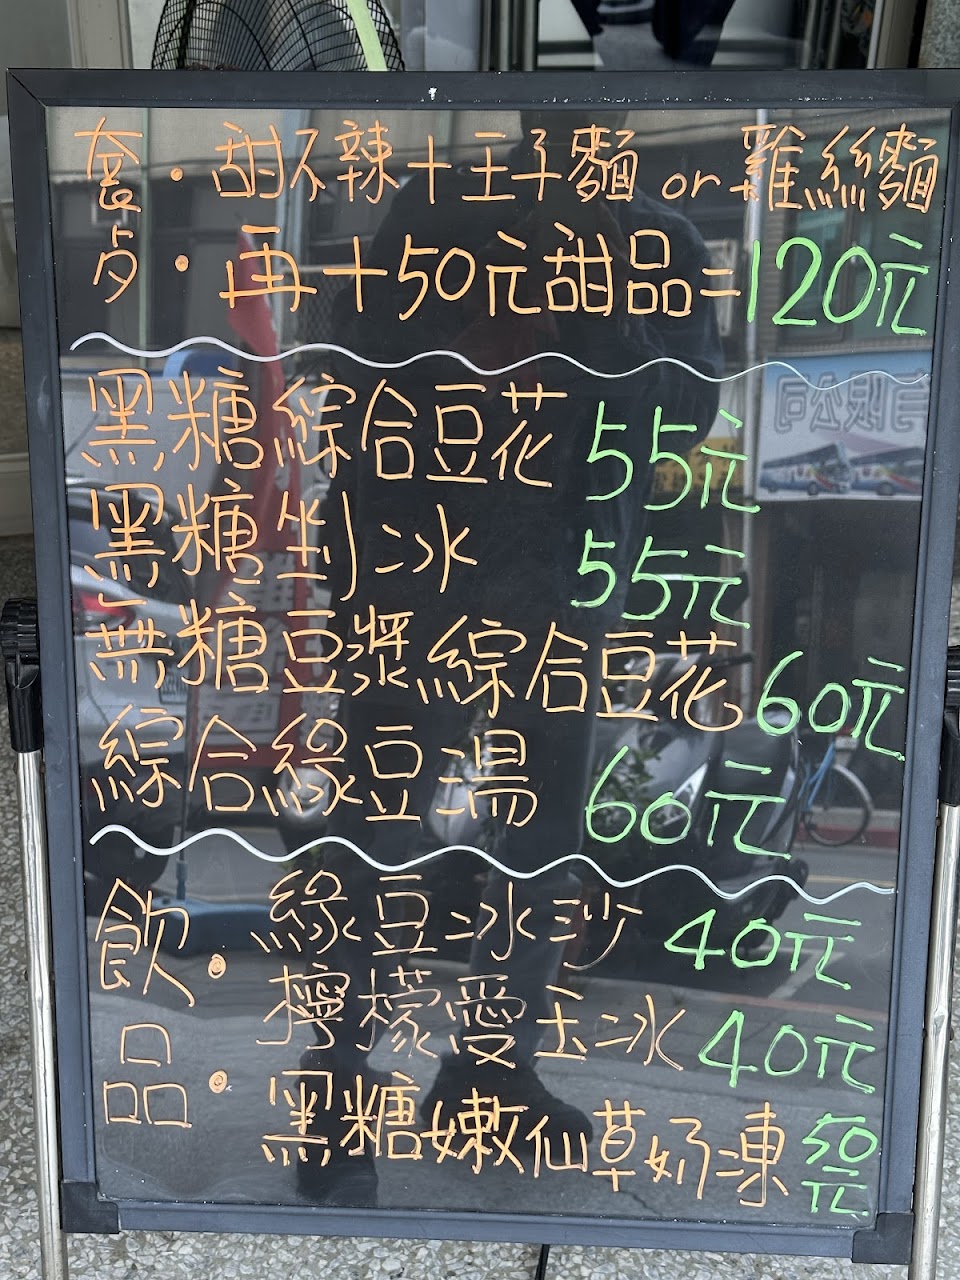 套・甜不辣+王子麵 or 雞絲麵
歺・再+50元甜品=120元
黑糖綜合豆花 55元
黑糖剉冰 55元
無糖豆漿綜合豆花 60元
綜合綠豆湯 60元
飲品・綠豆冰沙 40元
檸檬愛玉冰 40元
・黑糖嫩仙草奶凍 50元
有限公司